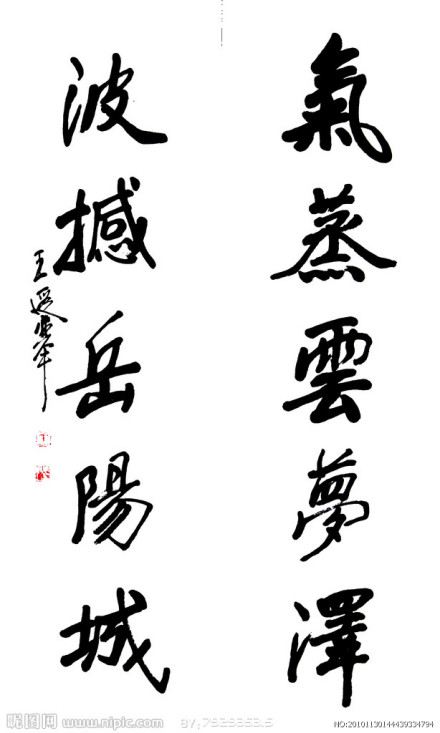 氣蒸雲夢澤
波撼岳陽城
昵图网 www.nipic.com
NO:20101130144439334794